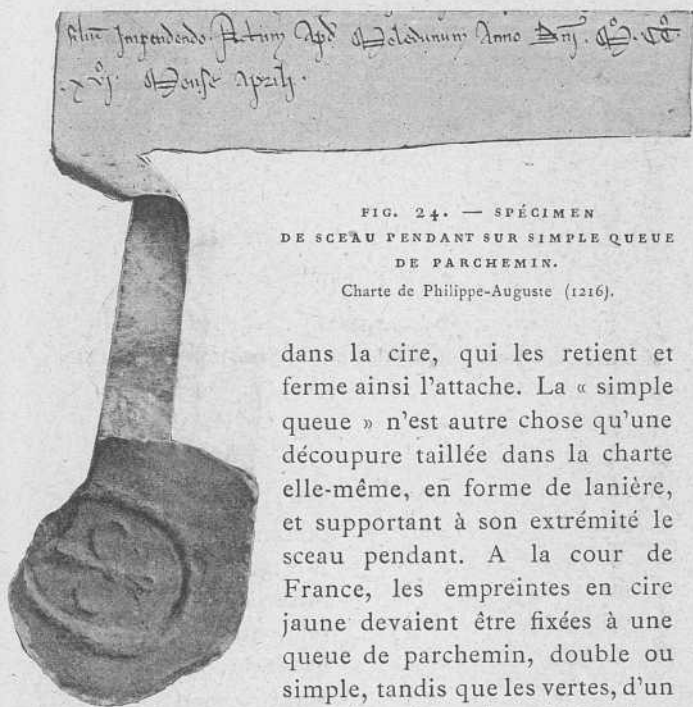 Impendendo. Actum Apd Meledunum Anno Dnj. Mº. CCº.
. xvjº. Mense Aprili.
FIG. 24. — SPÉCIMEN
DE SCEAU PENDANT SUR SIMPLE QUEUE
DE PARCHEMIN.
Charte de Philippe-Auguste (1216).
dans la cire, qui les retient et
ferme ainsi l’attache. La « simple
queue » n’est autre chose qu’une
découpure taillée dans la charte
elle-même, en forme de lanière,
et supportant à son extrémité le
sceau pendant. A la cour de
France, les empreintes en cire
jaune devaient être fixées à une
queue de parchemin, double ou
simple, tandis que les vertes, d’un